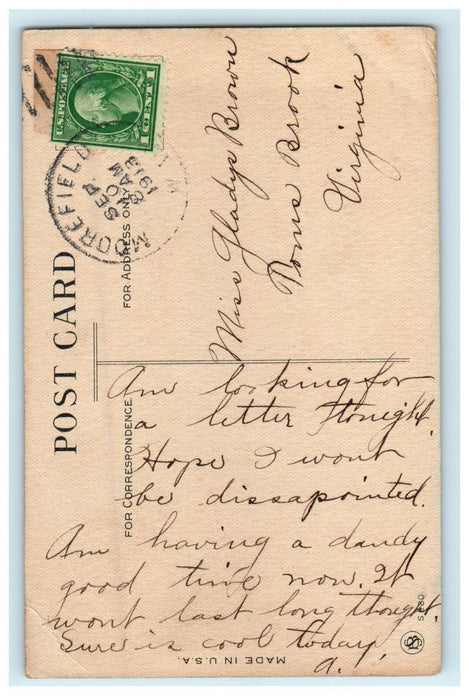 U.S. POSTAGE
1 CENT 1
MOOREFIELD
SEP
AM
1913
W. VA.
POST CARD
FOR ADDRESS ONLY
FOR CORRESPONDENCE
Miss Gladys Brown
Brook
Virginia
Am looking for
a letter tonight.
Hope I wont
be dissapointed.
Am having a dandy
good time now. It
wont last long thought.
Sure is cool today.
a.
MADE IN U.S.A.